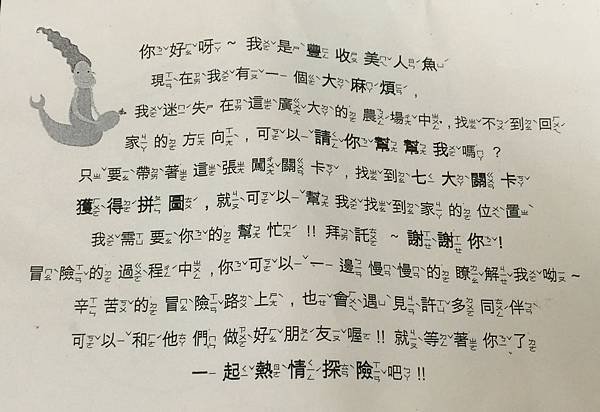 你好呀~我是豐收美人魚
現在我有一個大麻煩，
我迷失在這廣大的農場中，找不到回
家的方向，可以請你幫幫我嗎？
只要帶著這張闖關卡，找到七大關卡
獲得拼圖，就可以幫我找到家的位置
我需要你的幫忙!!拜託~謝謝你!
冒險的過程中，你可以一邊慢慢的瞭解我呦~
辛苦的冒險路上，也會遇見許多同伴
可以和他們做好朋友喔!!就等著你了
一起熱情探險吧!!